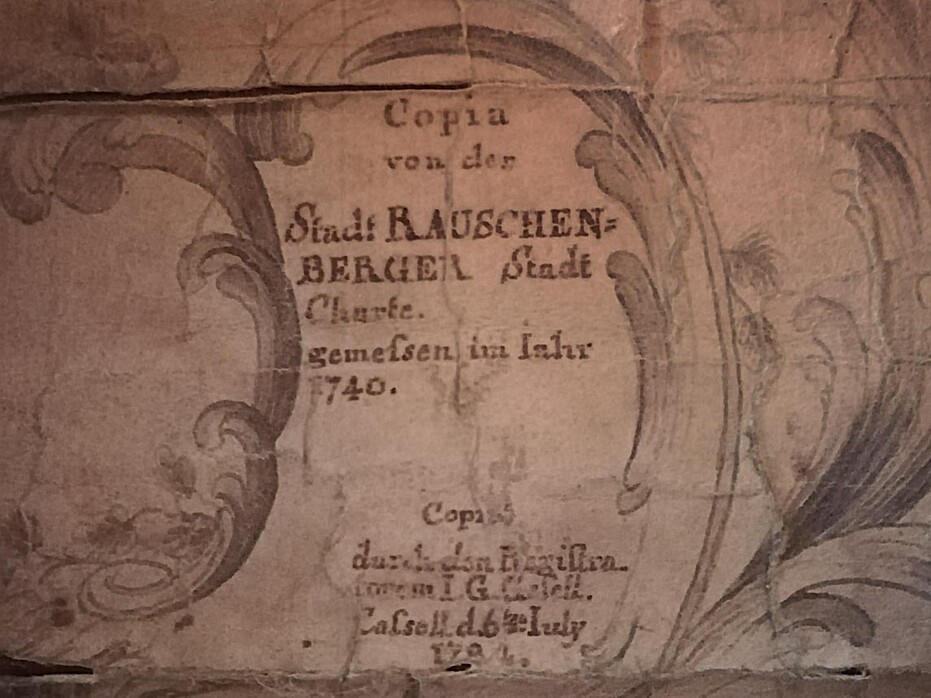 Copia
von der
Stadt RAUSCHEN=
BERGER Stadt
Charte.
gemeſsen im Iahr
1740.
Copirt
durch den Regiſtra-
torem I. G.
Caſsell. d. 6ten Iuly